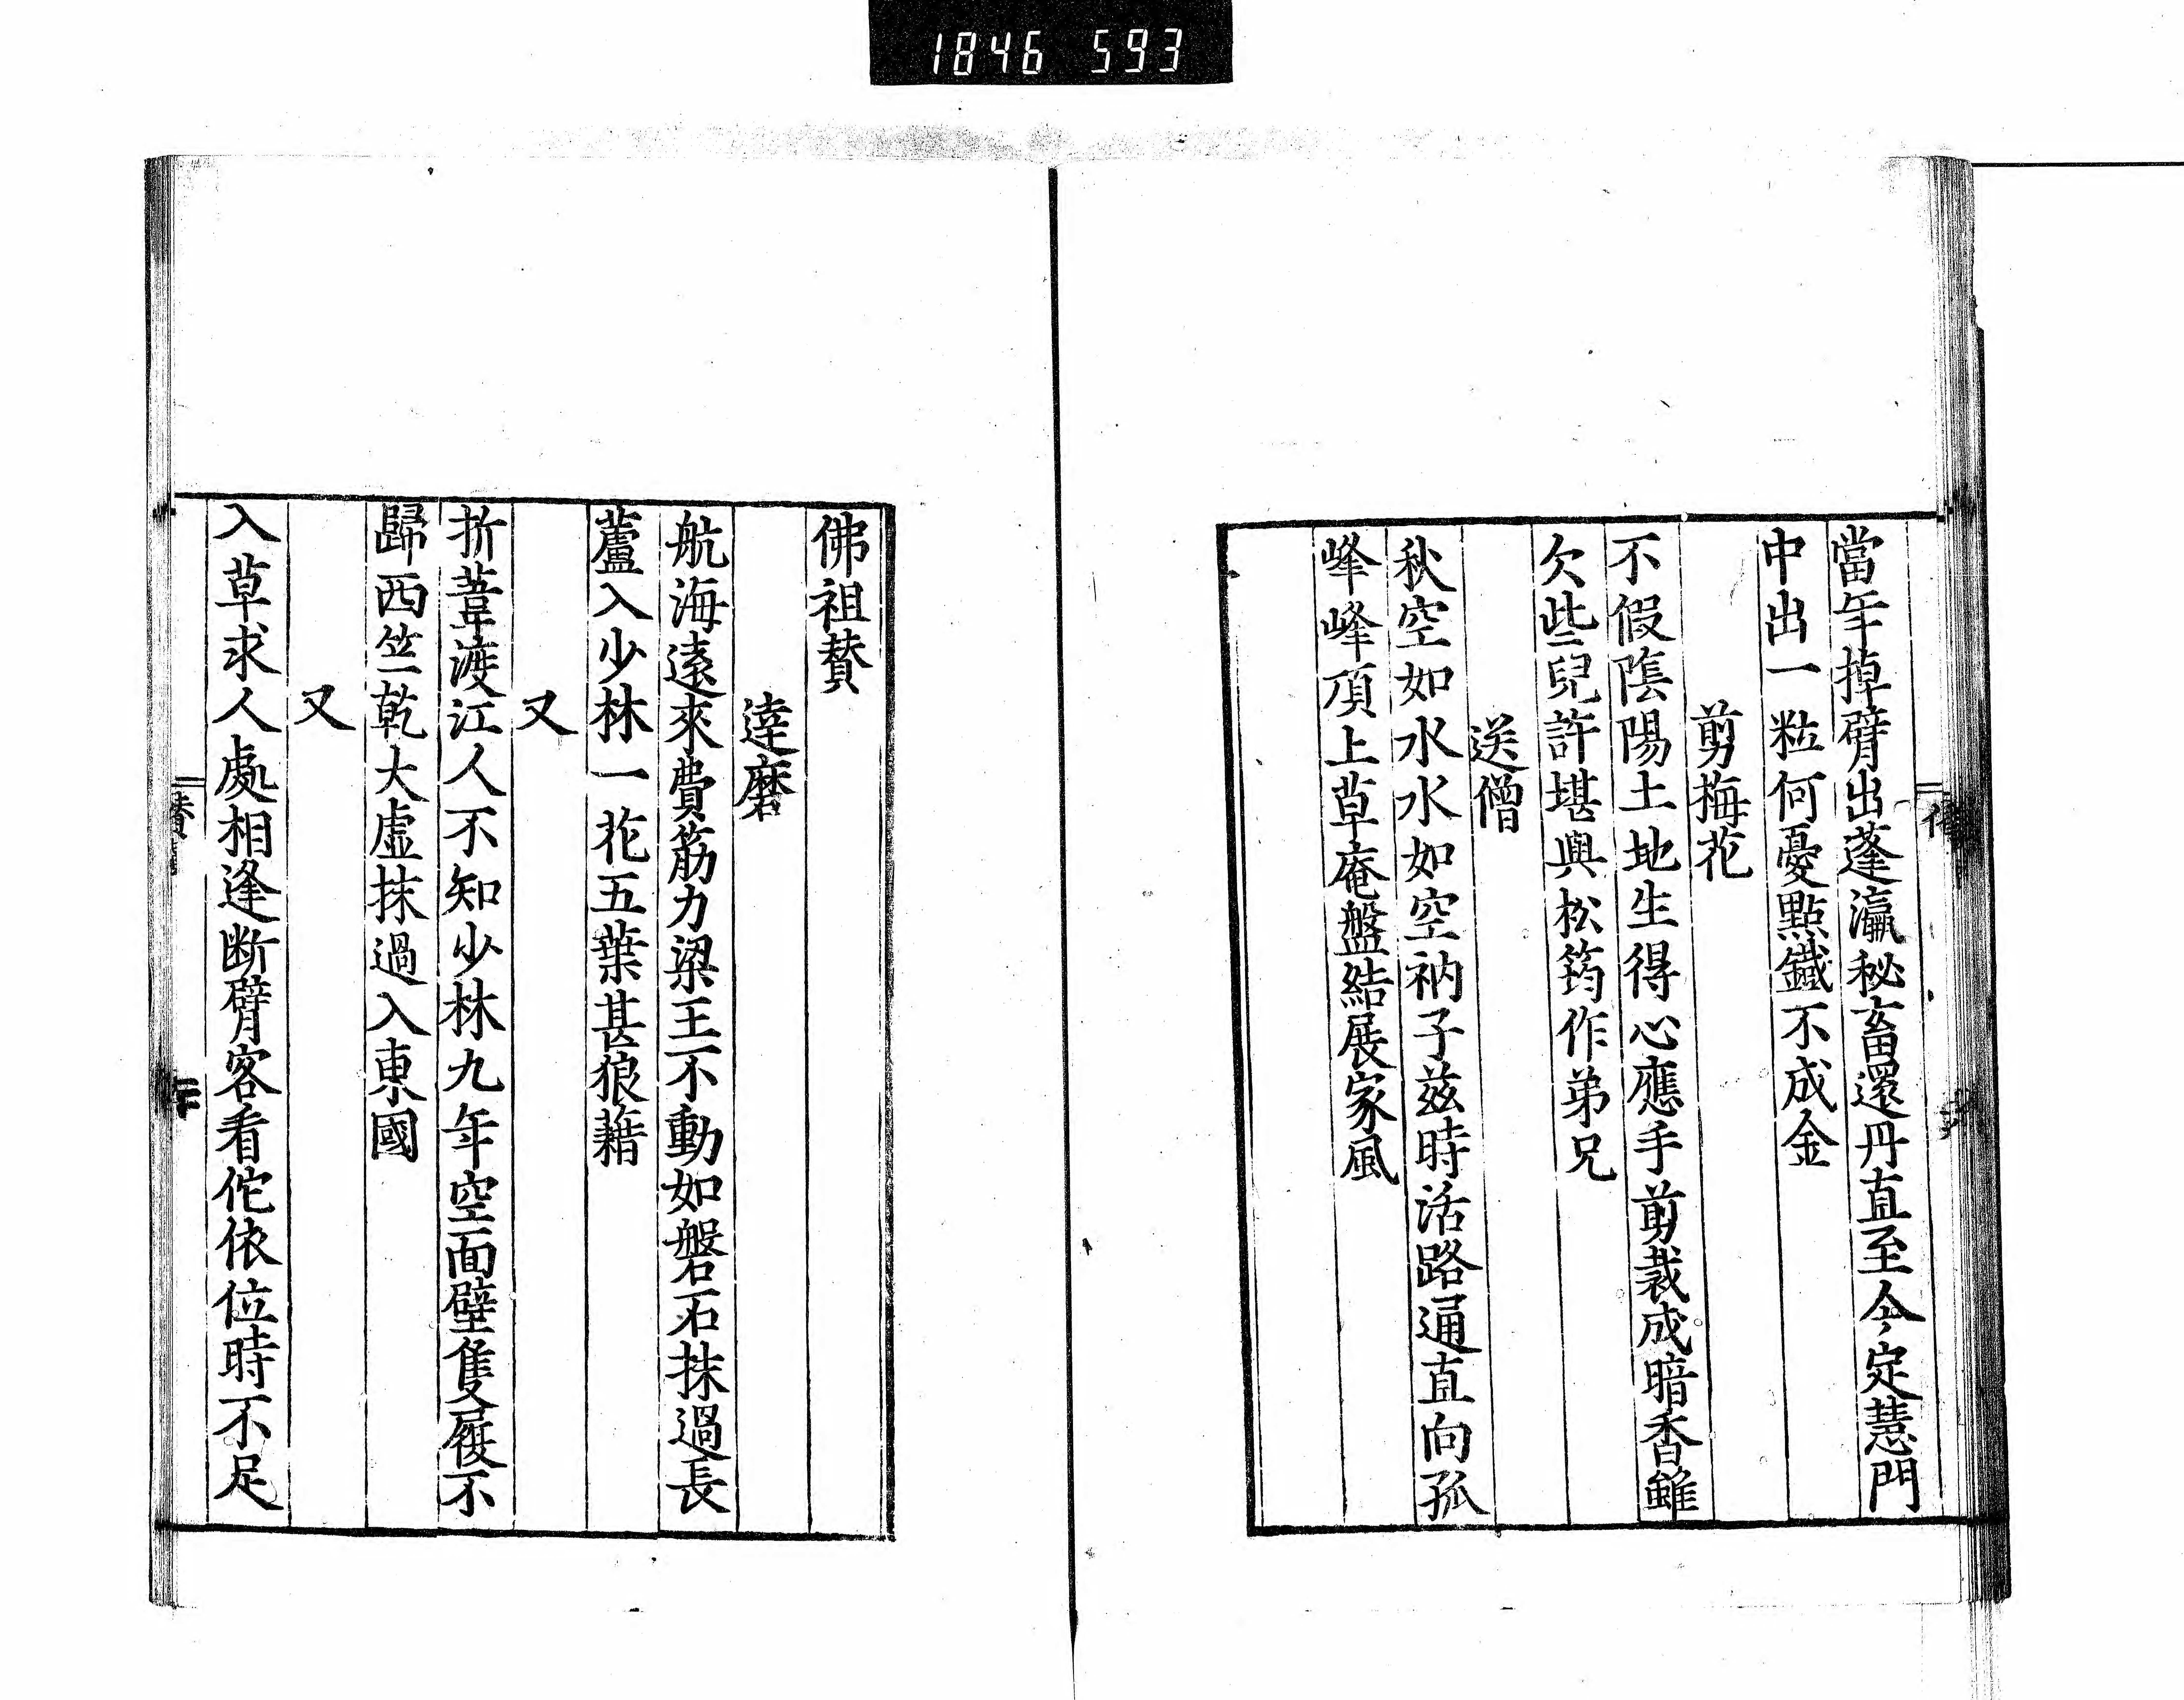 1846 593
當年掉臂出蓬瀛秘畜還丹直至今定慧門
中出一粒何憂點鐵不成金
剪梅花
不假陰陽土地生得心應手剪裁成暗香雖
欠些兒許堪與松筠作弟兄
送僧
秋空如水水如空衲子兹時活路通直向孤
峰峰頂上草庵盤結展家風
佛祖賛
達磨
航海遠來費筋力梁王不動如磐石抹過長
蘆入少林一花五葉甚狼藉
又
折葦渡江人不知少林九年空面壁隻履不
歸西竺乾大虛抹過入東國
又
入草求人處相逢断臂客看佗依位時不足